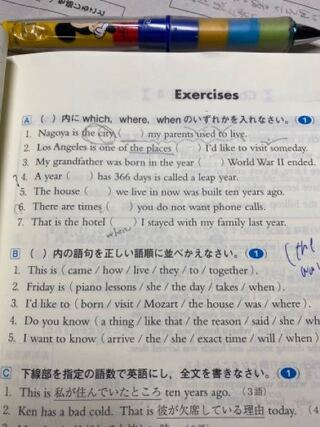 Exercises
A ( ) 内に which, where, when のいずれかを入れなさい。 1
1. Nagoya is the city ( ) my parents used to live.
2. Los Angeles is one of the places ( ) I'd like to visit someday.
3. My grandfather was born in the year ( ) World War II ended.
4. A year ( ) has 366 days is called a leap year.
5. The house ( ) we live in now was built ten years ago.
6. There are times ( ) you do not want phone calls.
7. That is the hotel ( ) I stayed with my family last year.
when
B ( ) 内の語句を正しい語順に並べかえなさい。 1
(the
1. This is (came / how / live / they / to / together).
2. Friday is (piano lessons / she / the day / takes / when).
3. I'd like to (born / visit / Mozart / the house / was / where).
4. Do you know (a thing / like that / the reason / said / she / wh
5. I want to know (arrive / the / she / exact time / will / when)
C 下線部を指定の語数で英語にし、全文を書きなさい。 1
1. This is 私が住んでいたところ ten years ago. (3語)
2. Ken has a bad cold. That is 彼が欠席している理由 today. (4